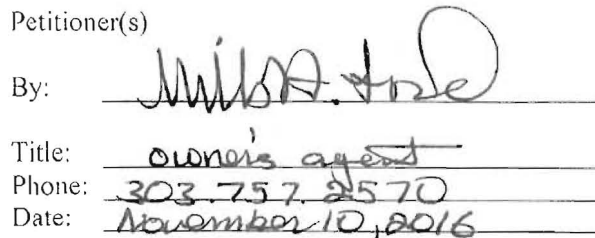 Petitioner(s)
By:
Title: owner's agent
Phone: 303.757.2570
Date: November 10, 2016